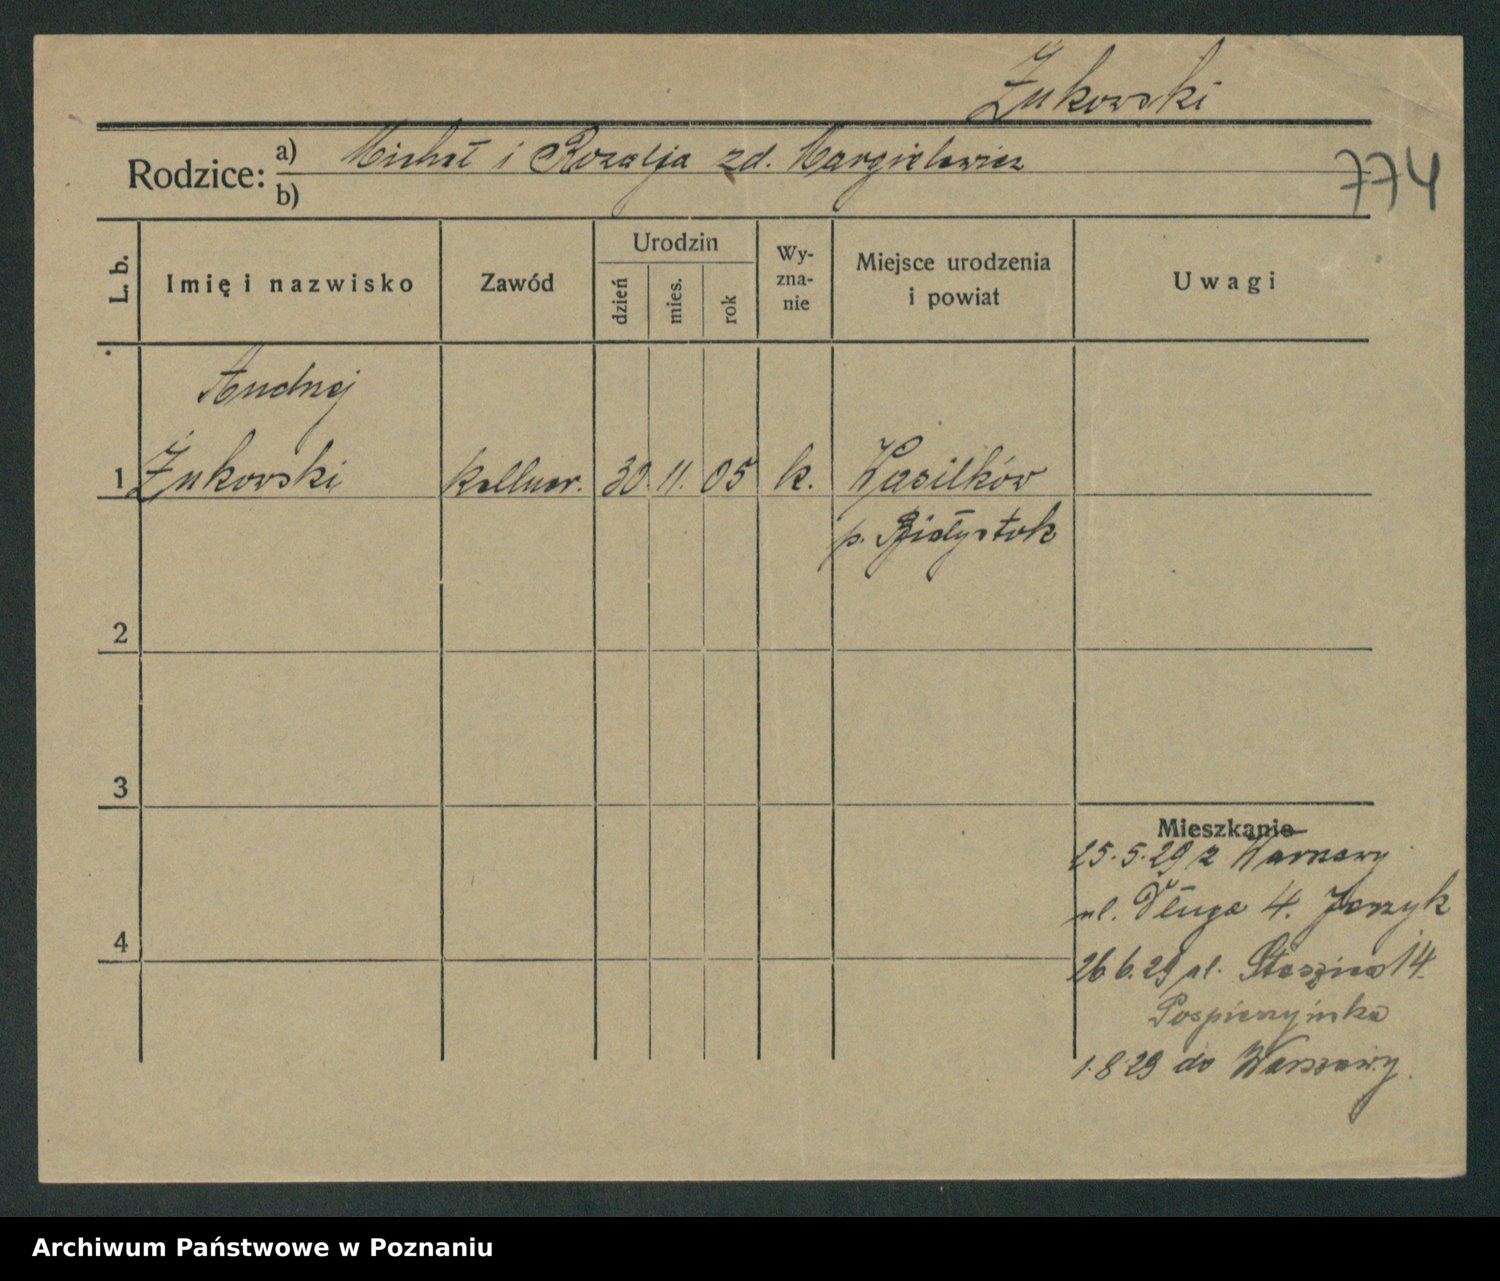 Żukowski
Rodzice: a) Michał i Rozalja zd. Margielewicz
b)
774
L. b.
Imię i nazwisko
Zawód
Urodzin
dzień
mies.
rok
Wy-
zna-
nie
Miejsce urodzenia
i powiat
Uwagi
Andrzej
1 Żukowski kellner. 30. 11. 05 k. Wasilków
p. Białystok
2
3
Mieszkanie
25.5.29 z Warszawy
ul. Długa 4. Jerzyk
4
26.6.29 pl. Staszica 14.
1.8.29 do Warszawy.
Archiwum Państwowe w Poznaniu